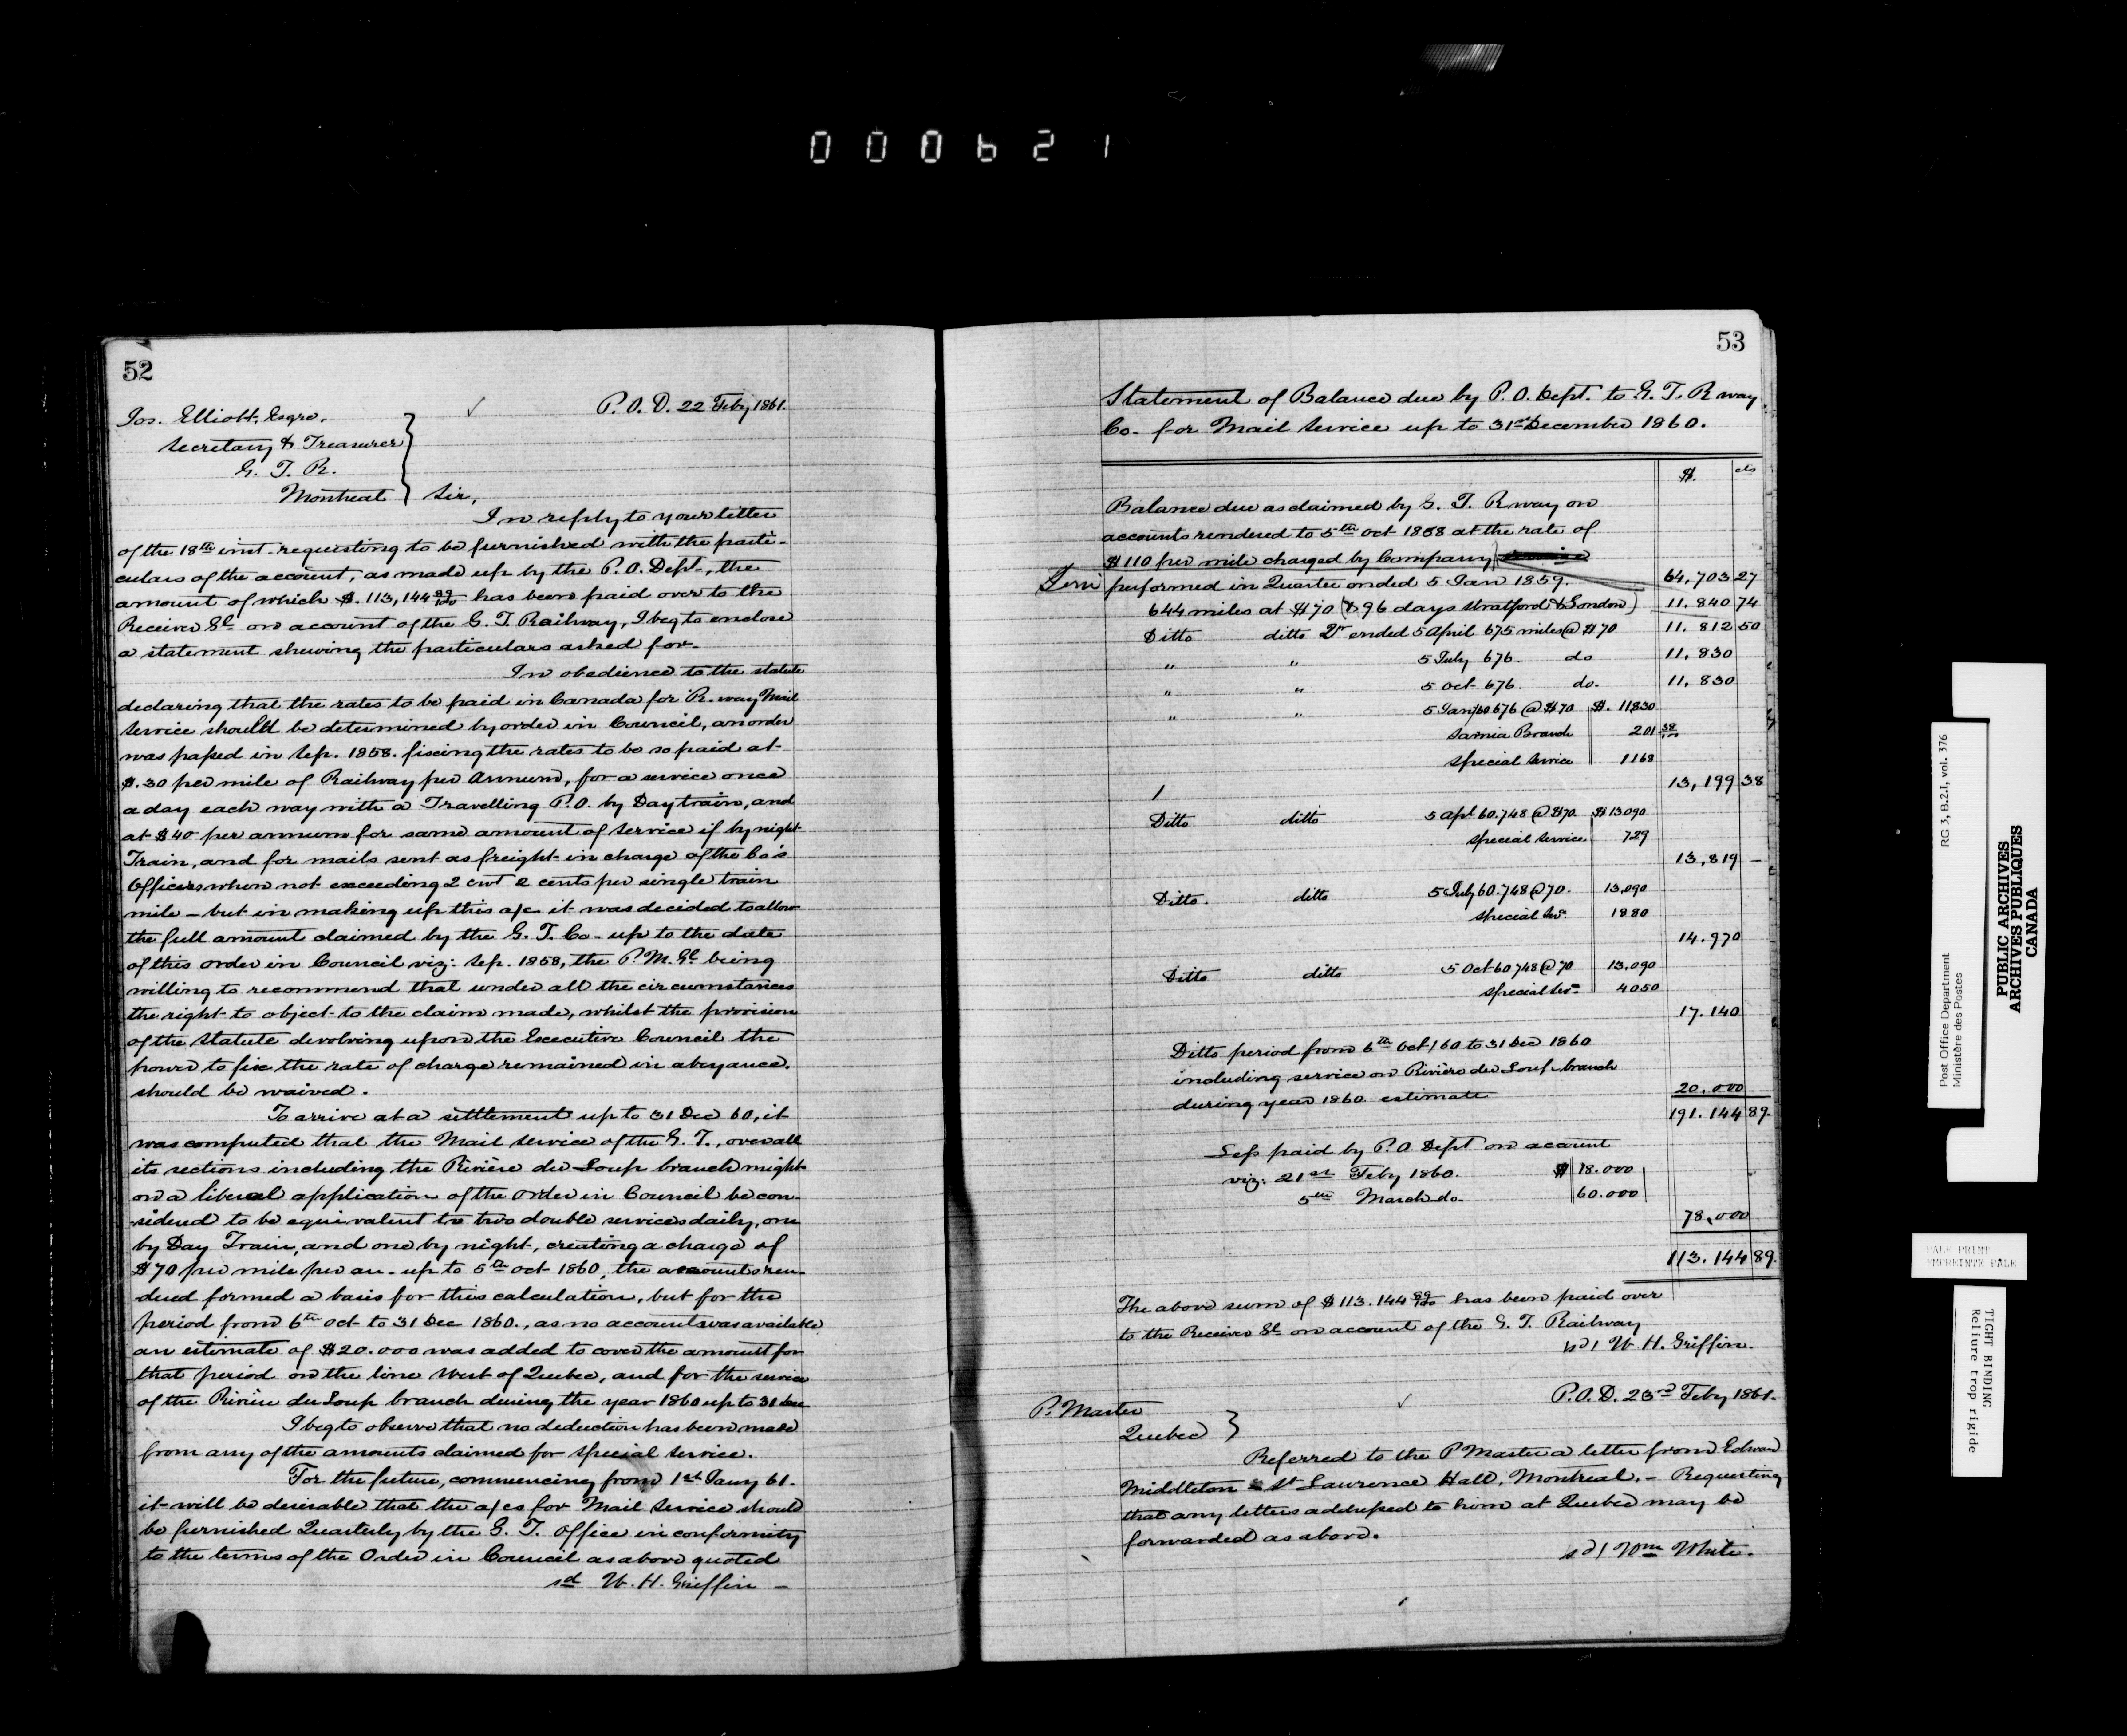 000621
52
P.O.D. 22 Feby 1861.
Jos. Elliott, Esqre.
Secretary & Treasurer
G. T. R.
Montreal
Sir,
In reply to your letter
of the 18th inst. requesting to be furnished with the parti-
culars of the account, as made up by the P.O. Dept., the
amount of which $.113,144 89/100 has been paid over to the
Receiver Gl. on account of the G. T. Railway, I beg to enclose
a statement shewing the particulars asked for.
In obedience to the statute
declaring that the rates to be paid in Canada for R. way Mail
Service should be determined by order in Council, an order
was passed in Sep. 1858. fixing the rates to be so paid at
$.30 per mile of Railway per Annum, for a service once
a day each way with a Travelling P.O. by Day train, and
at $40 per annum for same amount of service if by night
Train, and for mails sent as freight in charge of the Co's
Officers when not exceeding 2 cwt 2 cents per single train
mile – but in making up this a/c it was decided to allow
the full amount claimed by the G. T. Co. up to the date
of this order in Council viz: Sep. 1858, the P. M. Gl. being
willing to recommend that under all the circumstances
the right to object to the claim made, whilst the provision
of the Statute devolving upon the Executive Council the
power to fix the rate of charge remained in abeyance.
should be waived.
To arrive at a settlement up to 31 Dec 60, it
was computed that the Mail Service of the G. T., over all
its sections including the Rivière du Loup branch might
on a liberal application of the order in Council be con-
sidered to be equivalent to two double services daily, one
by Day Train, and one by night, creating a charge of
$70 per mile per an. up to 5th Oct 1860, the accounts ren-
dered formed a basis for this calculation, but for the
period from 6th Oct to 31 Dec 1860., as no account was available
an estimate of $20.000 was added to cover the amount for
that period on the line West of Quebec, and for the service
of the Rivière du Loup branch during the year 1860 up to 31 Dec
I beg to observe that no deduction has been made
from any of the amounts claimed for special service.
For the future, commencing from 1st Jany 61.
it will be desirable that the a/cs for Mail Service should
be furnished Quarterly by the G. T. office in conformity
to the terms of the Order in Council as above quoted
sd W. H. Griffin –
53
Statement of Balance due by P.O. Dept. to G. T. R way
Co. for Mail Service up to 31st December 1860.
$. cts
Balance due as claimed by G. T. R way on
accounts rendered to 5th Oct 1858 at the rate of
$110 per mile charged by Company
Servi performed in Quarter ended 5 Jan 1859. 64,703 27
644 miles at $70 (& 96 days Stratford & London) 11.840 74
Ditto ditto Qr ended 5 April 675 miles @ $70 11.812 50
" " 5 July 676. do 11,830
" " 5 Oct 676. do. 11,830
" " 5 Jan/60 676 @ $70 $. 11830
Sarnia Branch 201 38/100
special service 1168
13,199 38
Ditto ditto 5 Apl 60.748 @ $70. $13090
special service. 729
13,819 –
Ditto. ditto 5 July 60.748 @ 70. 13,090
special Ser. 1880
14.970
Ditto ditto 5 Oct 60 748 @ 70 13,090
special Ser. 4050
17.140
Ditto period from 6th Oct/60 to 31 Dec 1860
including service on Rivière du Loup branch
during year 1860. estimate 20.000
191.144 89.
Less paid by P.O. Dept on account
viz: 21st Feby 1860. $ 18.000
5th March do. 60.000
78,000
113.144 89.
The above sum of $113.144 89/100 has been paid over
to the Receiver Gl on account of the G. T. Railway
sd/ W. H. Griffin.
P.O.D. 23rd Feby 1861.
P. Master
Quebec
Referred to the P Master a letter from Edward
Middleton St Lawrence Hall, Montreal. – Requesting
that any letters addressed to him at Quebec may be
forwarded as above.
sd/ Wm White.
Post Office Department
Ministère des Postes
RG 3, B.2.I, vol. 376
PUBLIC ARCHIVES
ARCHIVES PUBLIQUES
CANADA
PALE PRINT
EMPREINTE PALE
TIGHT BINDING
Reliure trop rigide